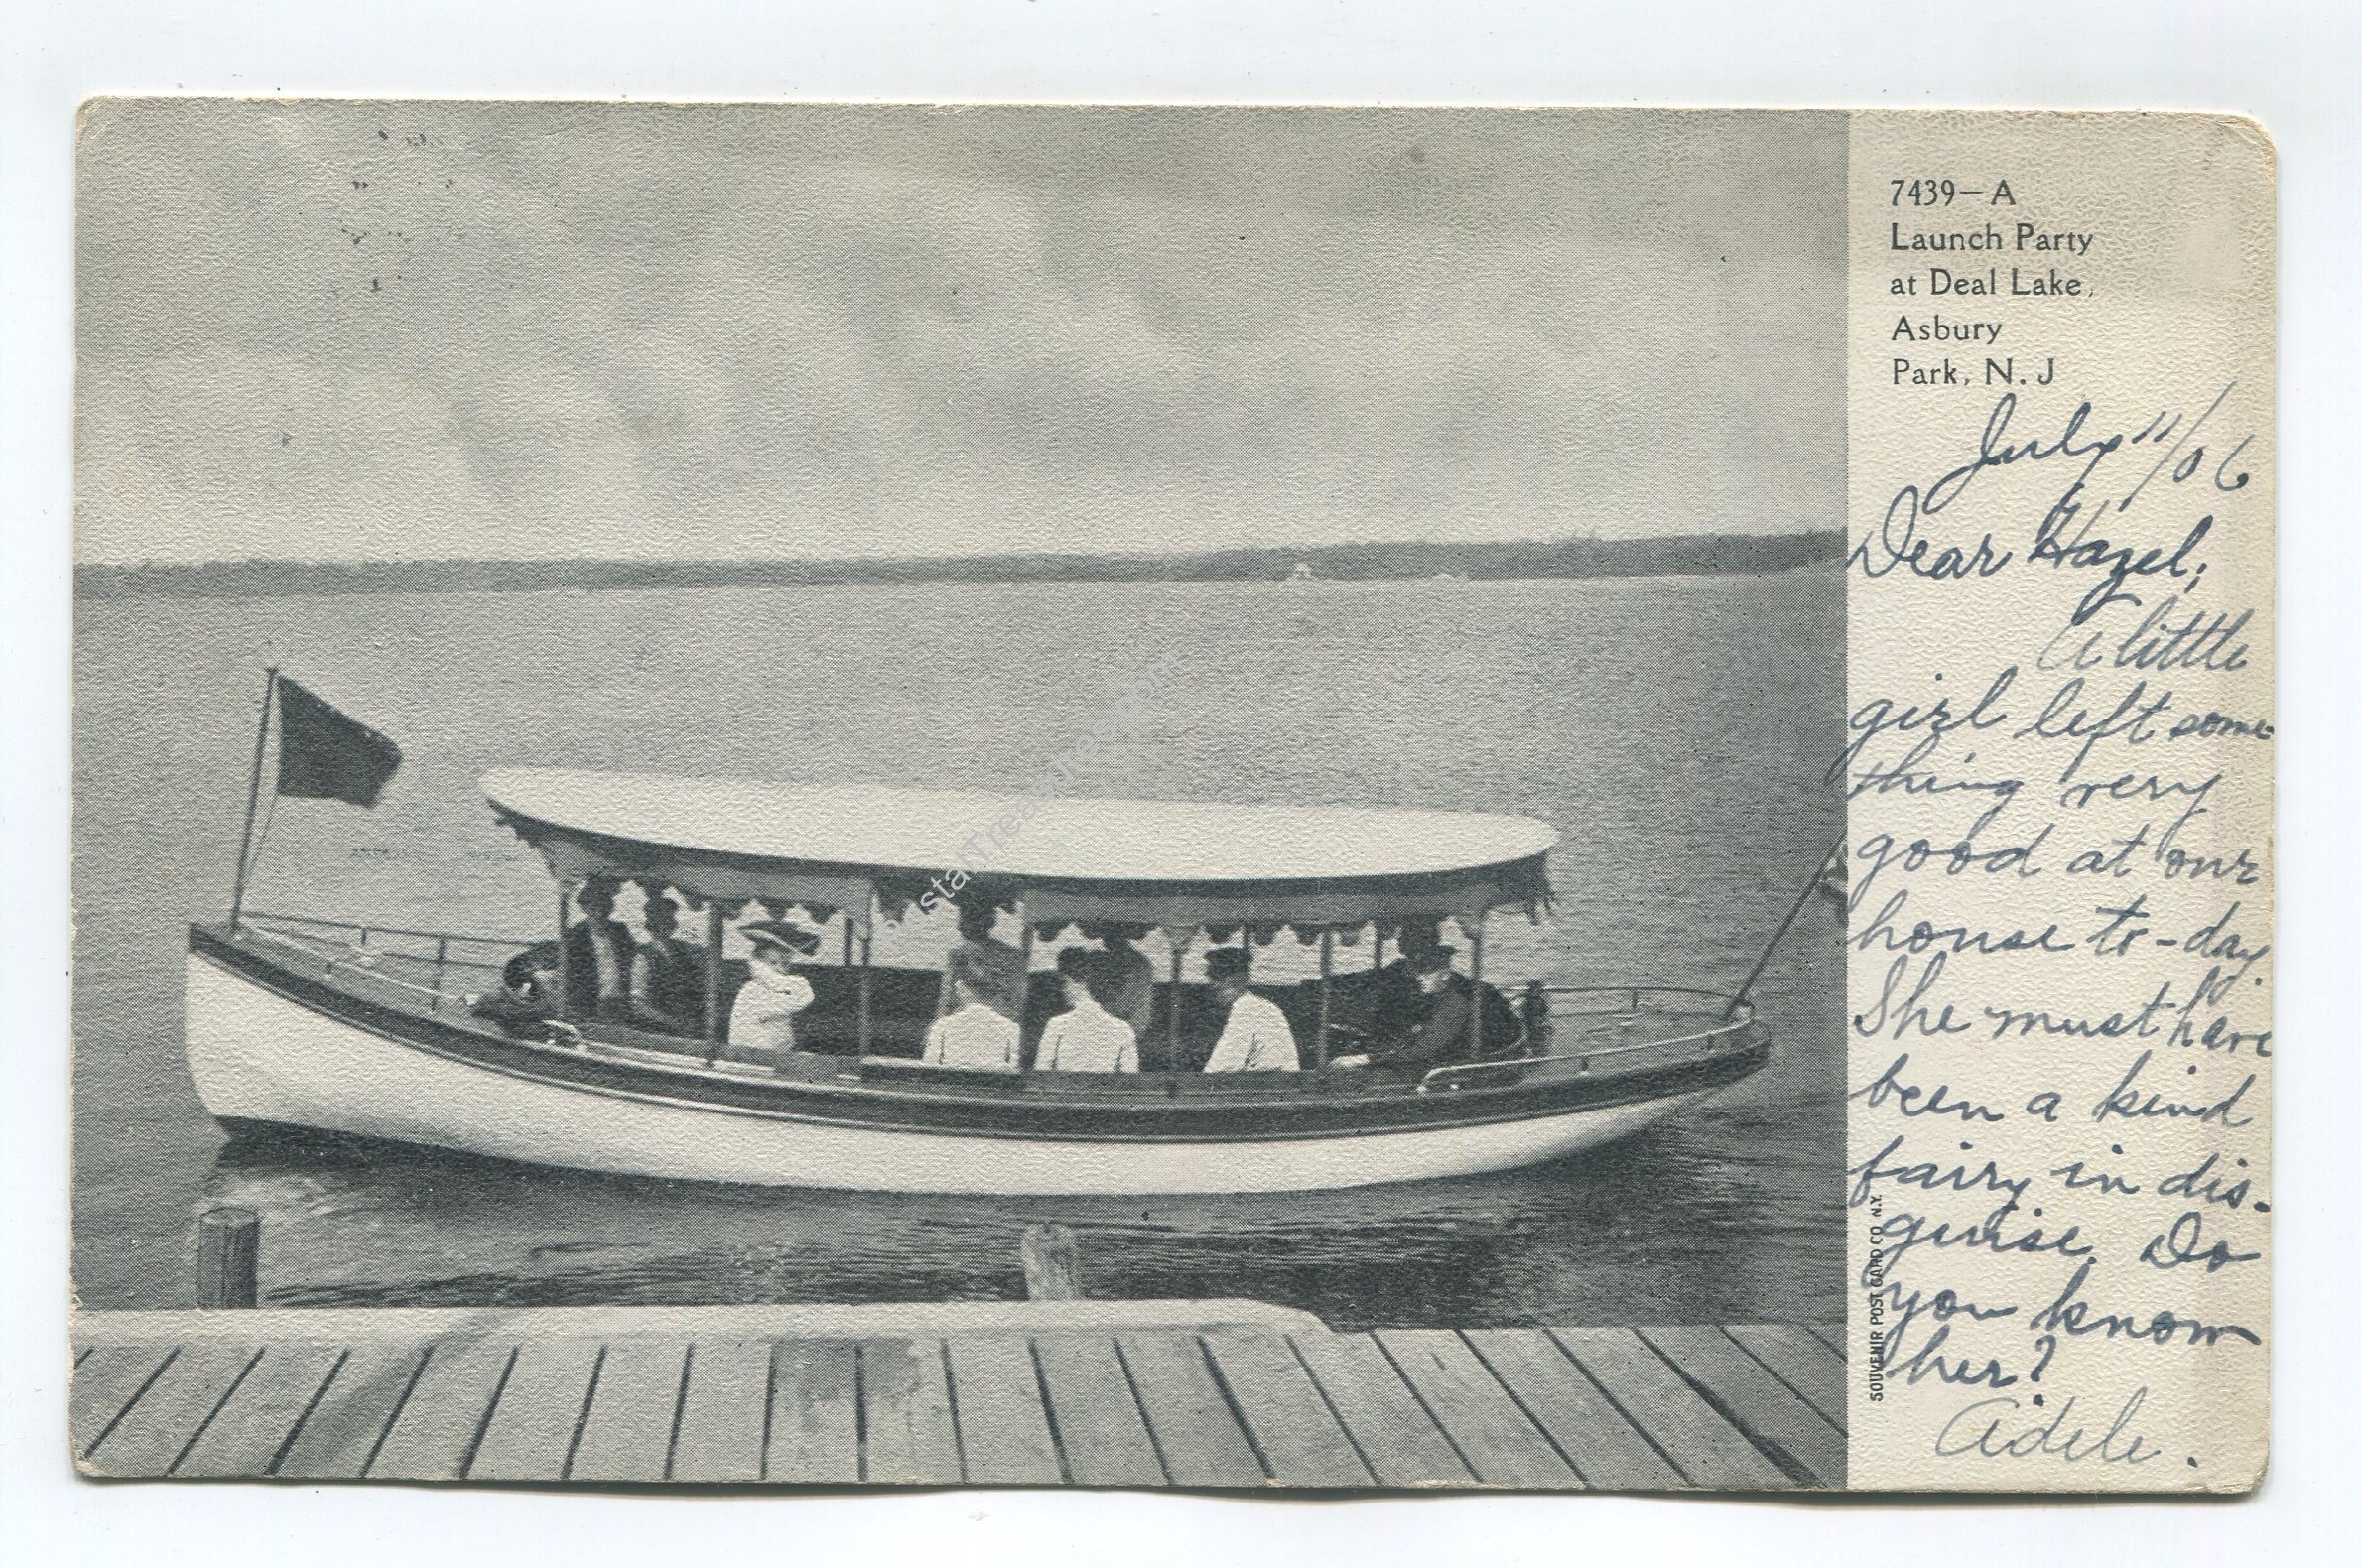 7439—A
Launch Party
at Deal Lake,
Asbury
Park, N. J
July 11/06
Dear Hazel;
A little
girl left some-
thing very
good at our
house to-day.
She must have
been a kind
fairy in dis-
guise. Do
you know
her?
Adele.
SOUVENIR POST CARD CO N.Y.
PostalTreasures.com